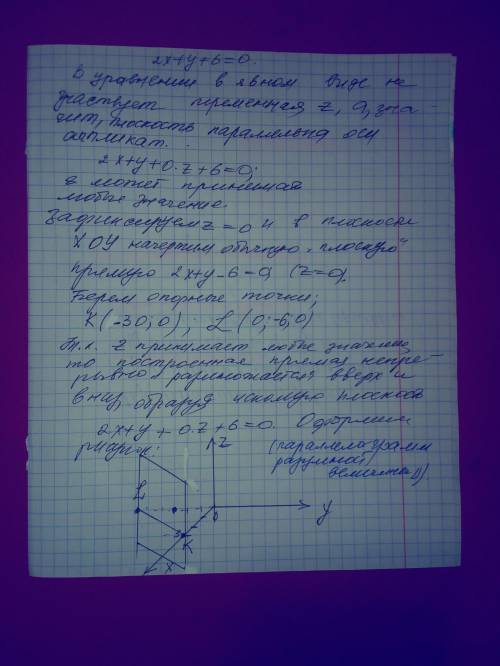 2x+y+6=0.
В уравнении в явном виде не
участвует переменная z, а, зна-
чит, плоскость параллельна оси
аппликат.
2x+y+0·z+6=0;
z может принимать
любые значение.
Зафиксируем z=0 и в плоскости
XOY начертим обычную „плоскую"
прямую 2x+y-6=0 (z=0).
Берем опорные точки;
K(-3;0;0); L(0;-6;0)
Т.к. z принимает любые значение,
то построенная прямая непре-
рывно „размножается" вверх и
вниз, образуя искомую плоскость
2x+y+0·z+6=0. Оформим
(параллелограмм
разумной
величины).
z
L
0
y
-3
K
x